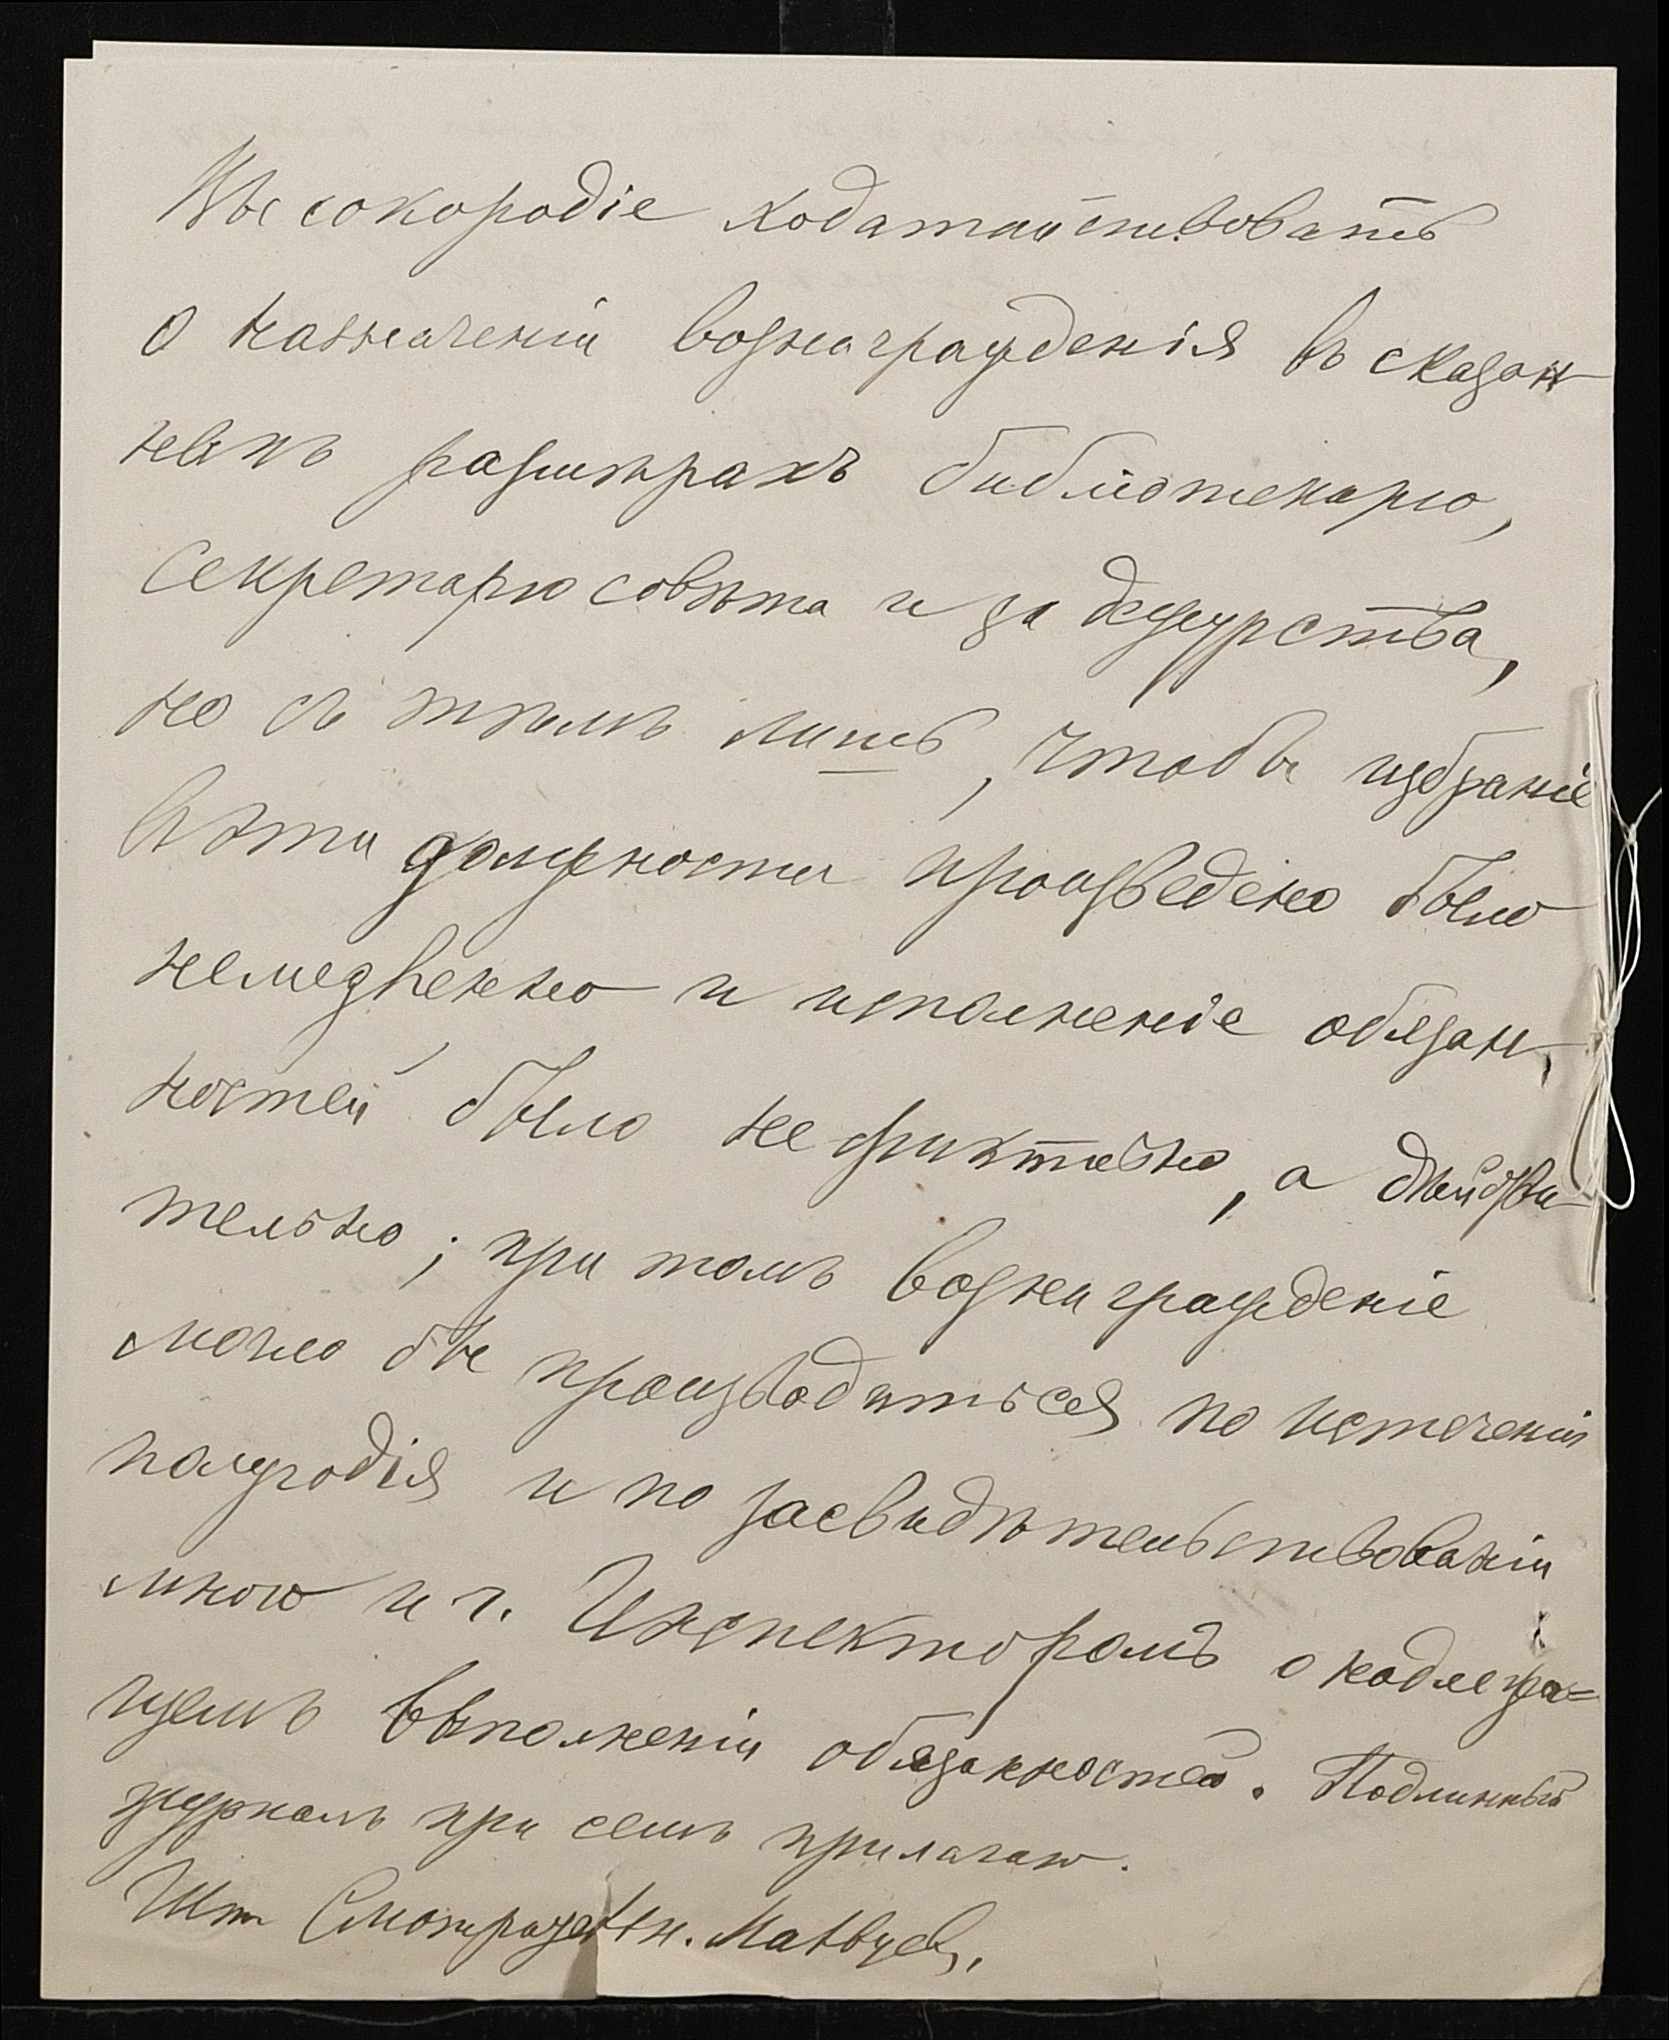 Высокородіе ходатайствовать
о назначеніи вознагражденія въ сказан
ныхъ размѣрахъ библіотекарю,
секретарю совѣта и за дежурства,
но съ тѣмъ лишь, чтобы избраніе
въ эти должности произведено было
немедленно и исполненіе обязан
ностей было не фиктивно, а дѣйстви
тельно; при томъ вознагражденіе
могло бы производиться по истеченіи
полугодія и по засвидѣтельствованіи
мною и г. Инспекторомъ о надлежа=
щемъ выполненіи обязанностей. Подлинный
журналъ при семъ прилагаю.
Шт Смотритель Н. Матвѣевъ.